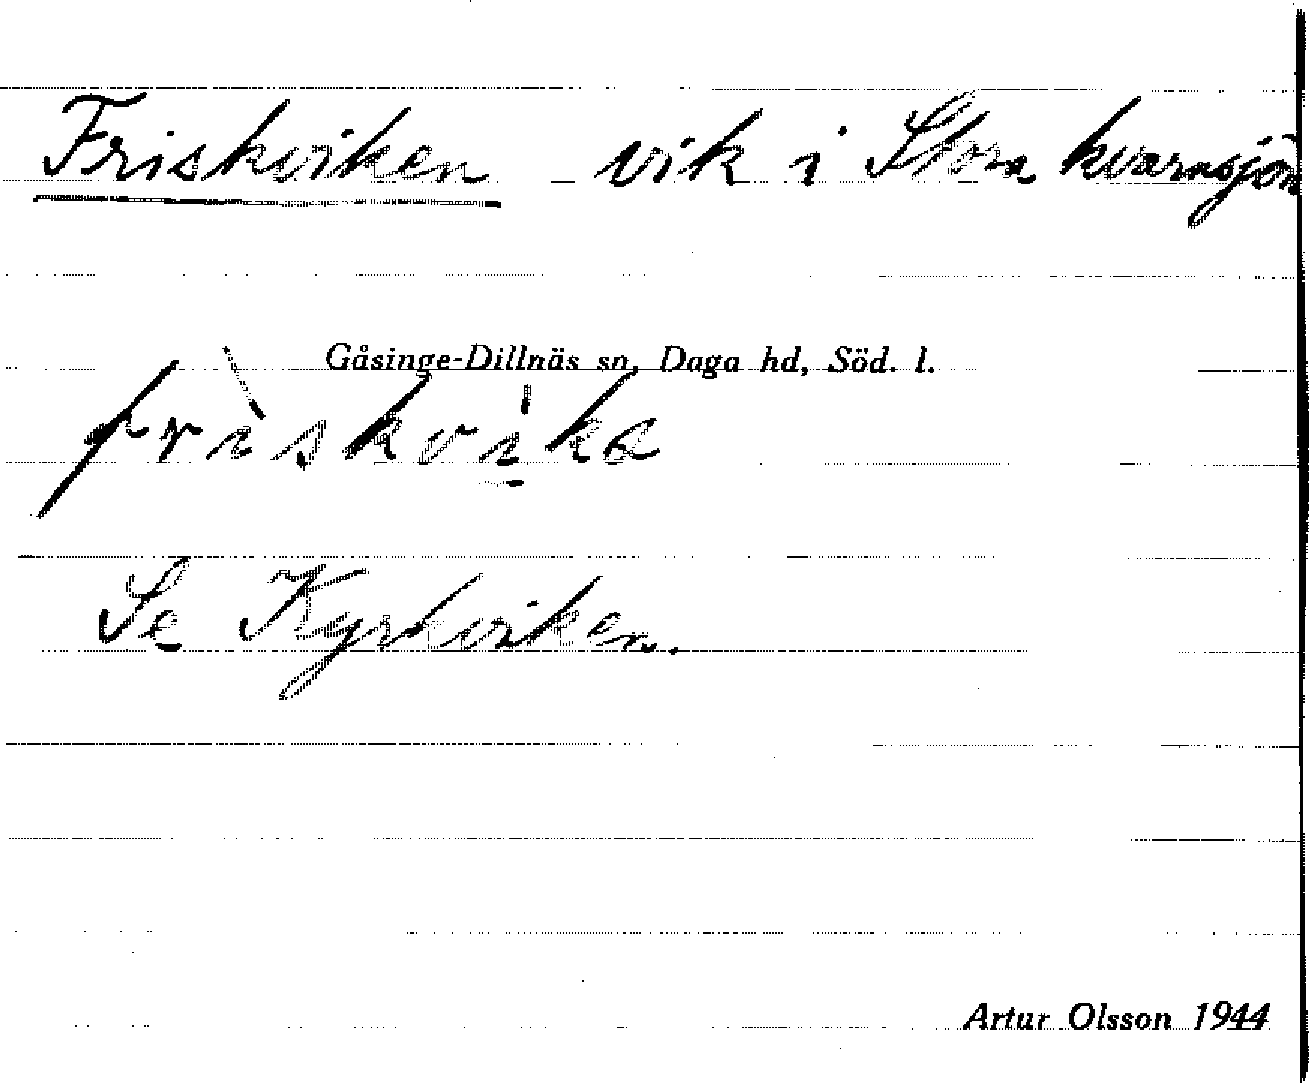 Friskviken vik i Stora kvarnsjön
Gåsinge-Dillnäs sn, Daga hd, Söd. l.
friskvika
Se Kyrkviken.
Artur Olsson 1944